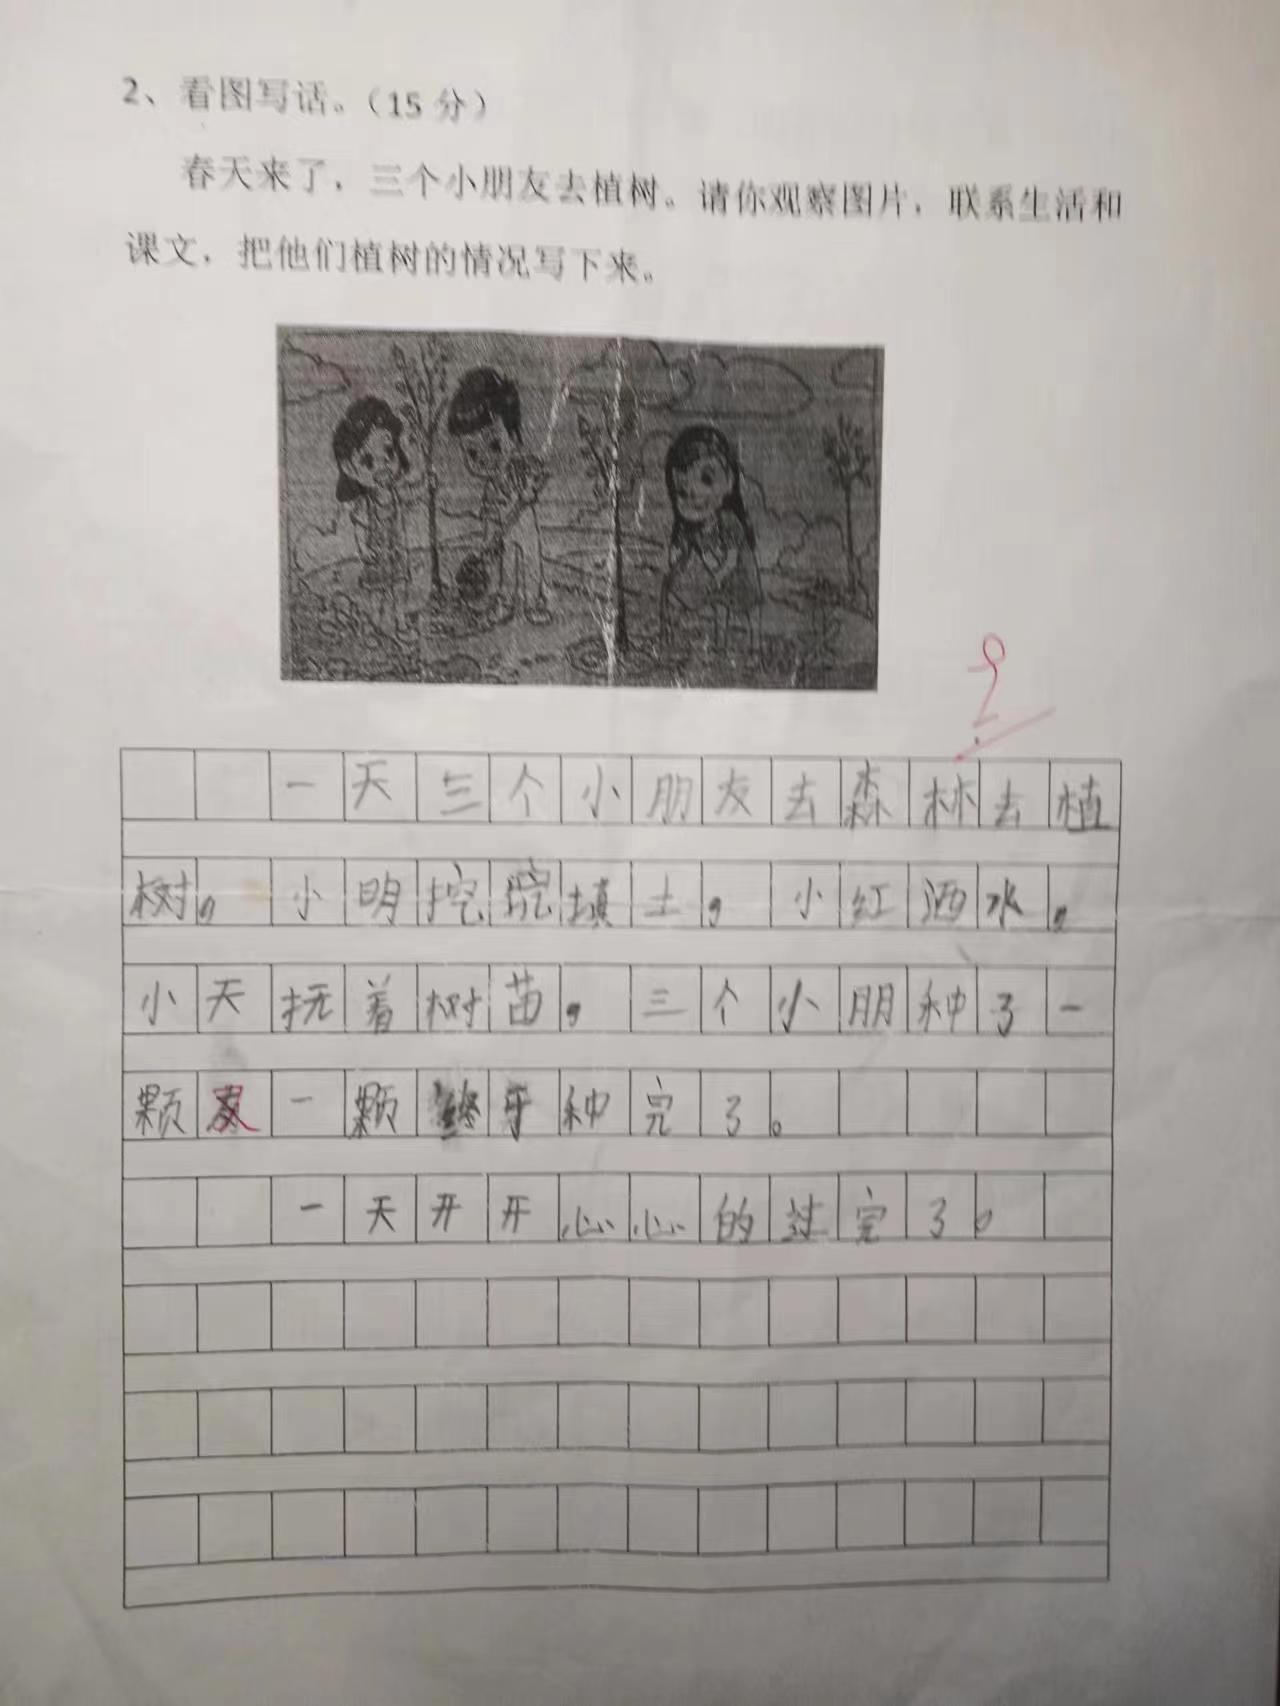 2、看图写话。（15 分）
春天来了，三个小朋友去植树。请你观察图片，联系生活和
课文，把他们植树的情况写下来。
一天三个小朋友去森林去植
树。小明挖填土，小红洒水。
小天抚着树苗。三个小朋种了一
颗一颗终于种完了。
一天开开心心的过完了。